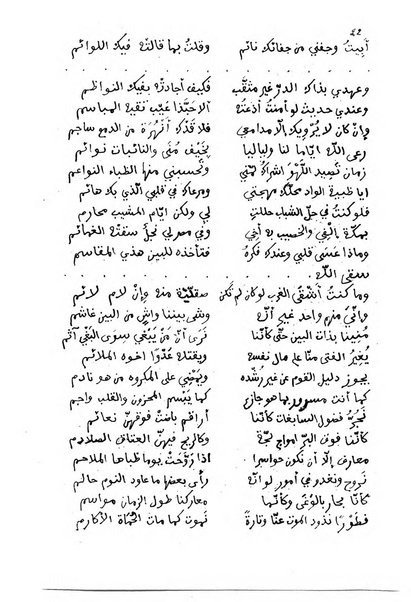 ٤٢
أبيتُ وجفني من جفائك نائم وقلتُ بها قالت فيك اللوائم
وعهدي بذاك الدرّ غير مثقّب فكيف أجادته بفيك النواظم
وعندي حديث لو أمنتُ أذعتُه ألا حبّذا عيب تقيه المباسم
وإن كان لا يُرويك إلا مدامعي فلا قَدْكَ من الدمع ساجم
رعى الله أياما لنا ولياليا مُنًى والنائبات نوائم
زمان نصيد اللهو أشراكُ لِمّتي وتحسبني منها الظباء النواعم
أيا ظبية الواد محلّك مهجتي ومرعاك في قلبي الذي بك هائم
فلو كنتُ في حلّ الشباب حللتِ لي ولكن أيام المشيب محارم
بمكة والخصيب به أخي وفي معزلي نجلٌ سقته الغمائم
وماذا عسى قلبي وعندك فكرة فتأخذه للبين هذي المقاسم
سقى الله
وما كنتُ أشتقي الغرب لو كان لم تكن صقليّة منه وإن لام لائم
وأنّي منهم واحد غير أنّه وشى بيننا واشٍ من البين غاشم
مُنينا بذات البين حتى كأننا نرى أنّ من يبغي سوى البغي آثم
يُغير الفتى منّا على مال نفسه ويقتله عَدْوًا أخوه الملائم
يجوز دليل القوم عن غير رُشده ويمضي على المكروه من هو نادم
كما أنت مسرور بما هو جازع كما يبسم المحزون والقلب واجم
نَجُرُّ فضول السابغات كأننا أراقم باتت فوقهنّ نعائم
كأننا فوق البرّ أمواج لجّة وكالريح فيهنّ العتاق الصلادم
معارف إلا أن تكون حواسرا إذا رَوّحَتْ يوما ظباها الملاحم
نروح ونغدو في أمور لو أنّه رأى بعضها ما عاود النوم حالم
كأننا بحار بالوغى وكأنّها معاركنا طول الزمان مواسم
فطَوْرًا نذود الموت عنّا وتارةً نموت كما مات الحُماة الأكارم